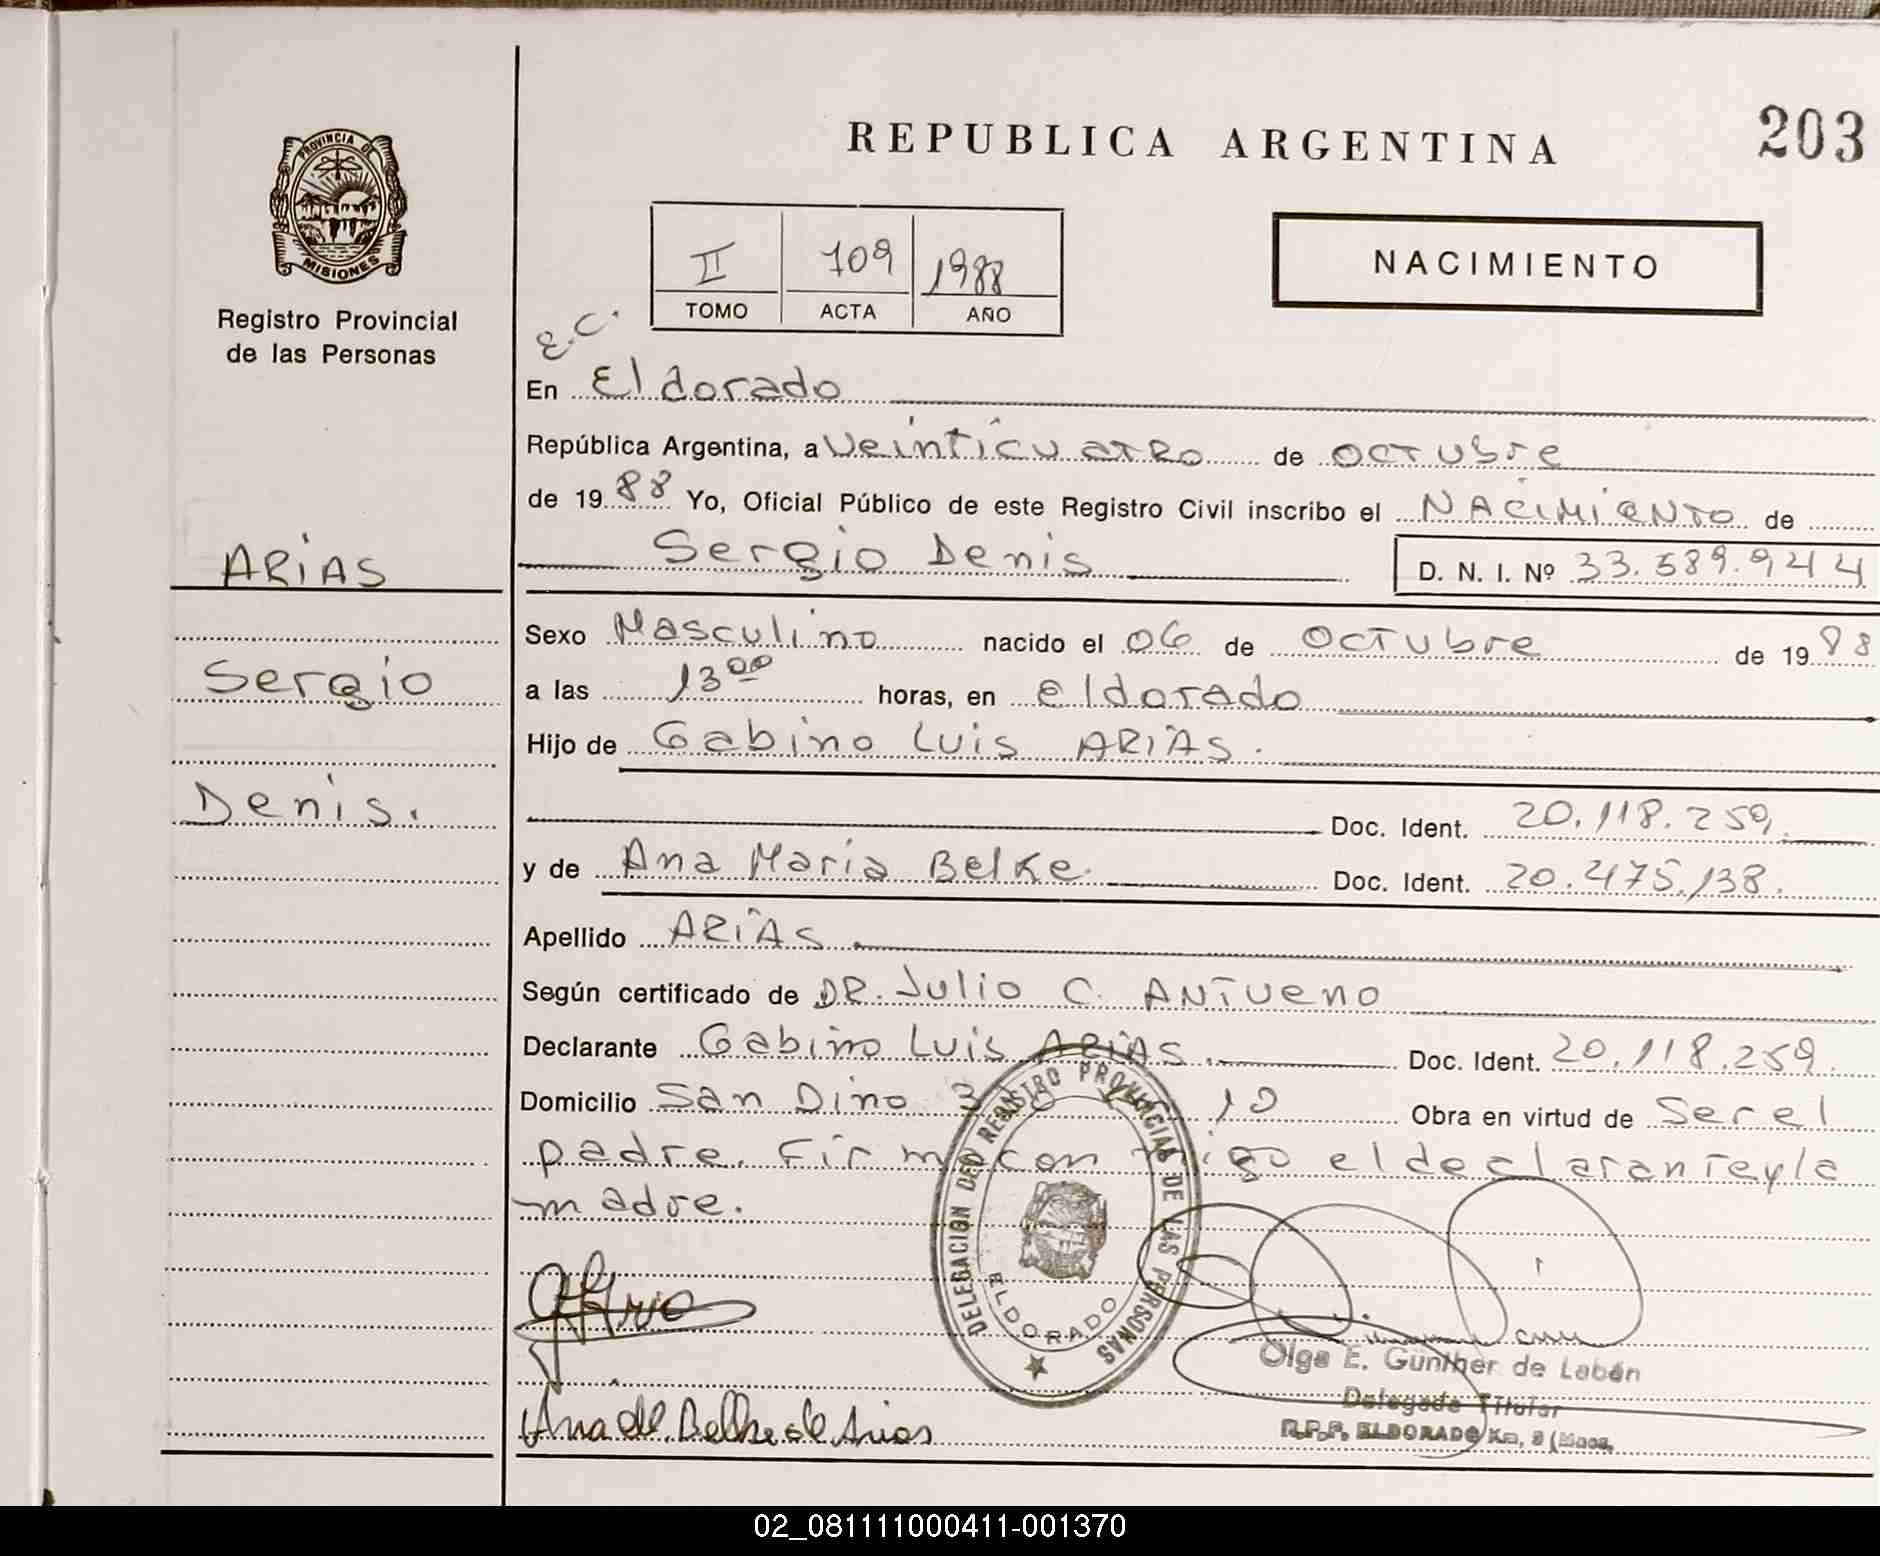 REPUBLICA ARGENTINA
203
PROVINCIA DE
MISIONES
Registro Provincial
de las Personas
II 109 1988
TOMO ACTA AÑO
NACIMIENTO
E.C.
En Eldorado
República Argentina, a Veinticuatro de octubre
de 1988 Yo, Oficial Público de este Registro Civil inscribo el NACIMIENTO de
ARIAS
Sergio Denis D. N. I. Nº 33.589.944
Sexo Masculino nacido el 06 de octubre de 1988
Sergio
a las 13 00 horas, en eldorado
Hijo de Gabino Luis ARIAS.
Denis.
Doc. Ident. 20.118.259.
y de Ana Maria Belke. Doc. Ident. 20.475.138.
Apellido ARIAS.
Según certificado de DR. Julio C. ANTUENO
Declarante Gabino Luis ARIAS. Doc. Ident. 20.118.259.
Domicilio San Dino 3 10 Obra en virtud de Ser el
padre. Firma conmigo el declarante y la
madre.
DELEGACION DEL REGISTRO PROVINCIAL DE LAS PERSONAS
ELDORADO
Olga E. Günther de Labán
Delegada Titular
R.P.P. ELDORADO Km. 9 (Mnes.
Ana M. Belke de Arias
02_081111000411-001370